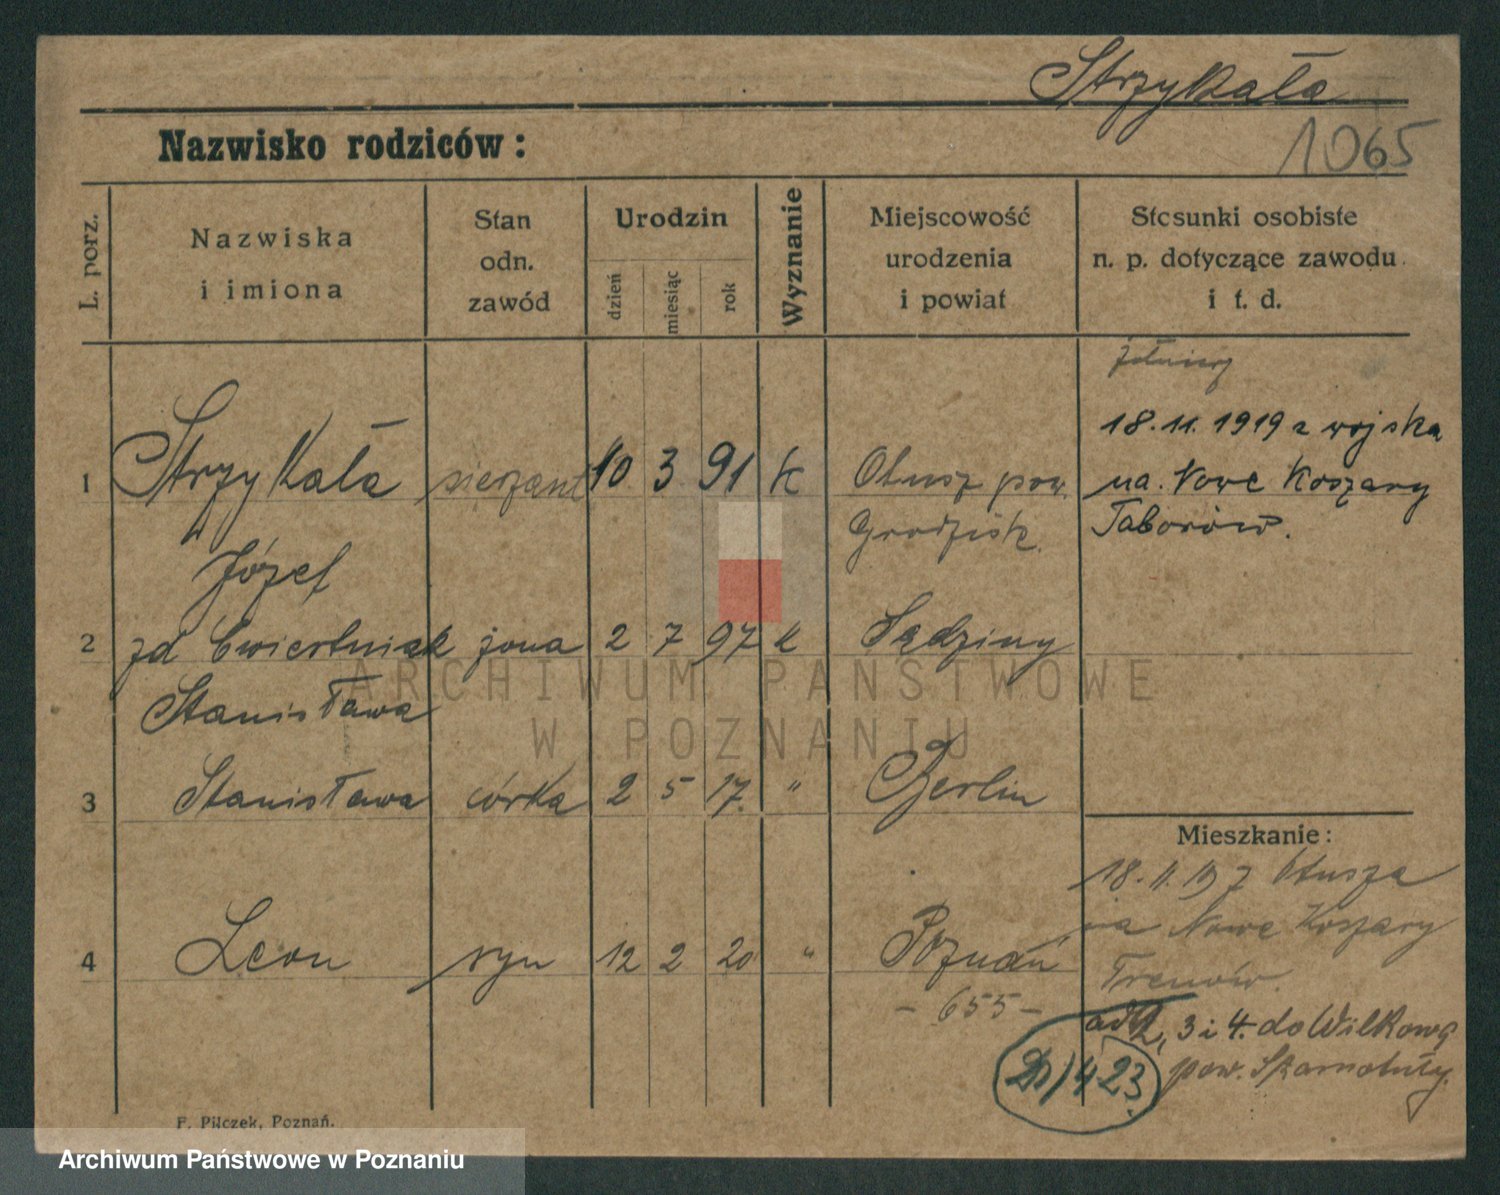 Strzykała
Nazwisko rodziców:
1065
L. porz.
Nazwiska
i imiona
Stan
odn.
zawód
Urodzin
dzień
miesiąc
rok
Wyznanie
Miejscowość
urodzenia
i powiat
Stosunki osobiste
n. p. dotyczące zawodu
i t. d.
żołnierz
18. 11. 1919 z wojska
na. Nowe Koszary
Taborów.
1 Strzykała sierżant 10 3 91 k Otusz pow.
Józef Grodzisk.
2 zd Cwiertniak żona 2 7 97 k Sędziny
Stanisława
3 Stanisława córka 2 5 17. " Berlin
4 Leon syn 12 2 20 " Poznań
- 655 -
Mieszkanie:
18. 11. 19 z Otusza
na Nowe Koszary
Trenów.
ad 2, 3 i 4. do Wilkowa
pow. Szamotuły.
4 23
F. Pilczek, Poznań.
ARCHIWUM PAŃSTWOWE
W POZNANIU
Archiwum Państwowe w Poznaniu